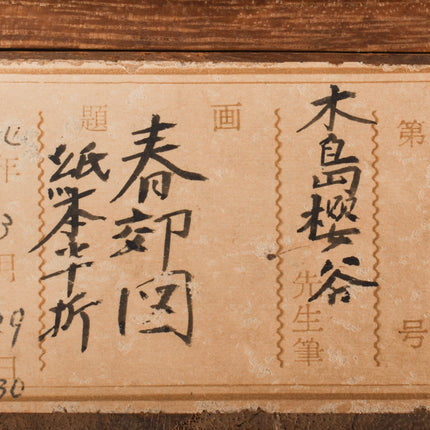 第 号
木島桜谷
先生筆
画題
春郊図
紙本半折
年 3月 29日
30